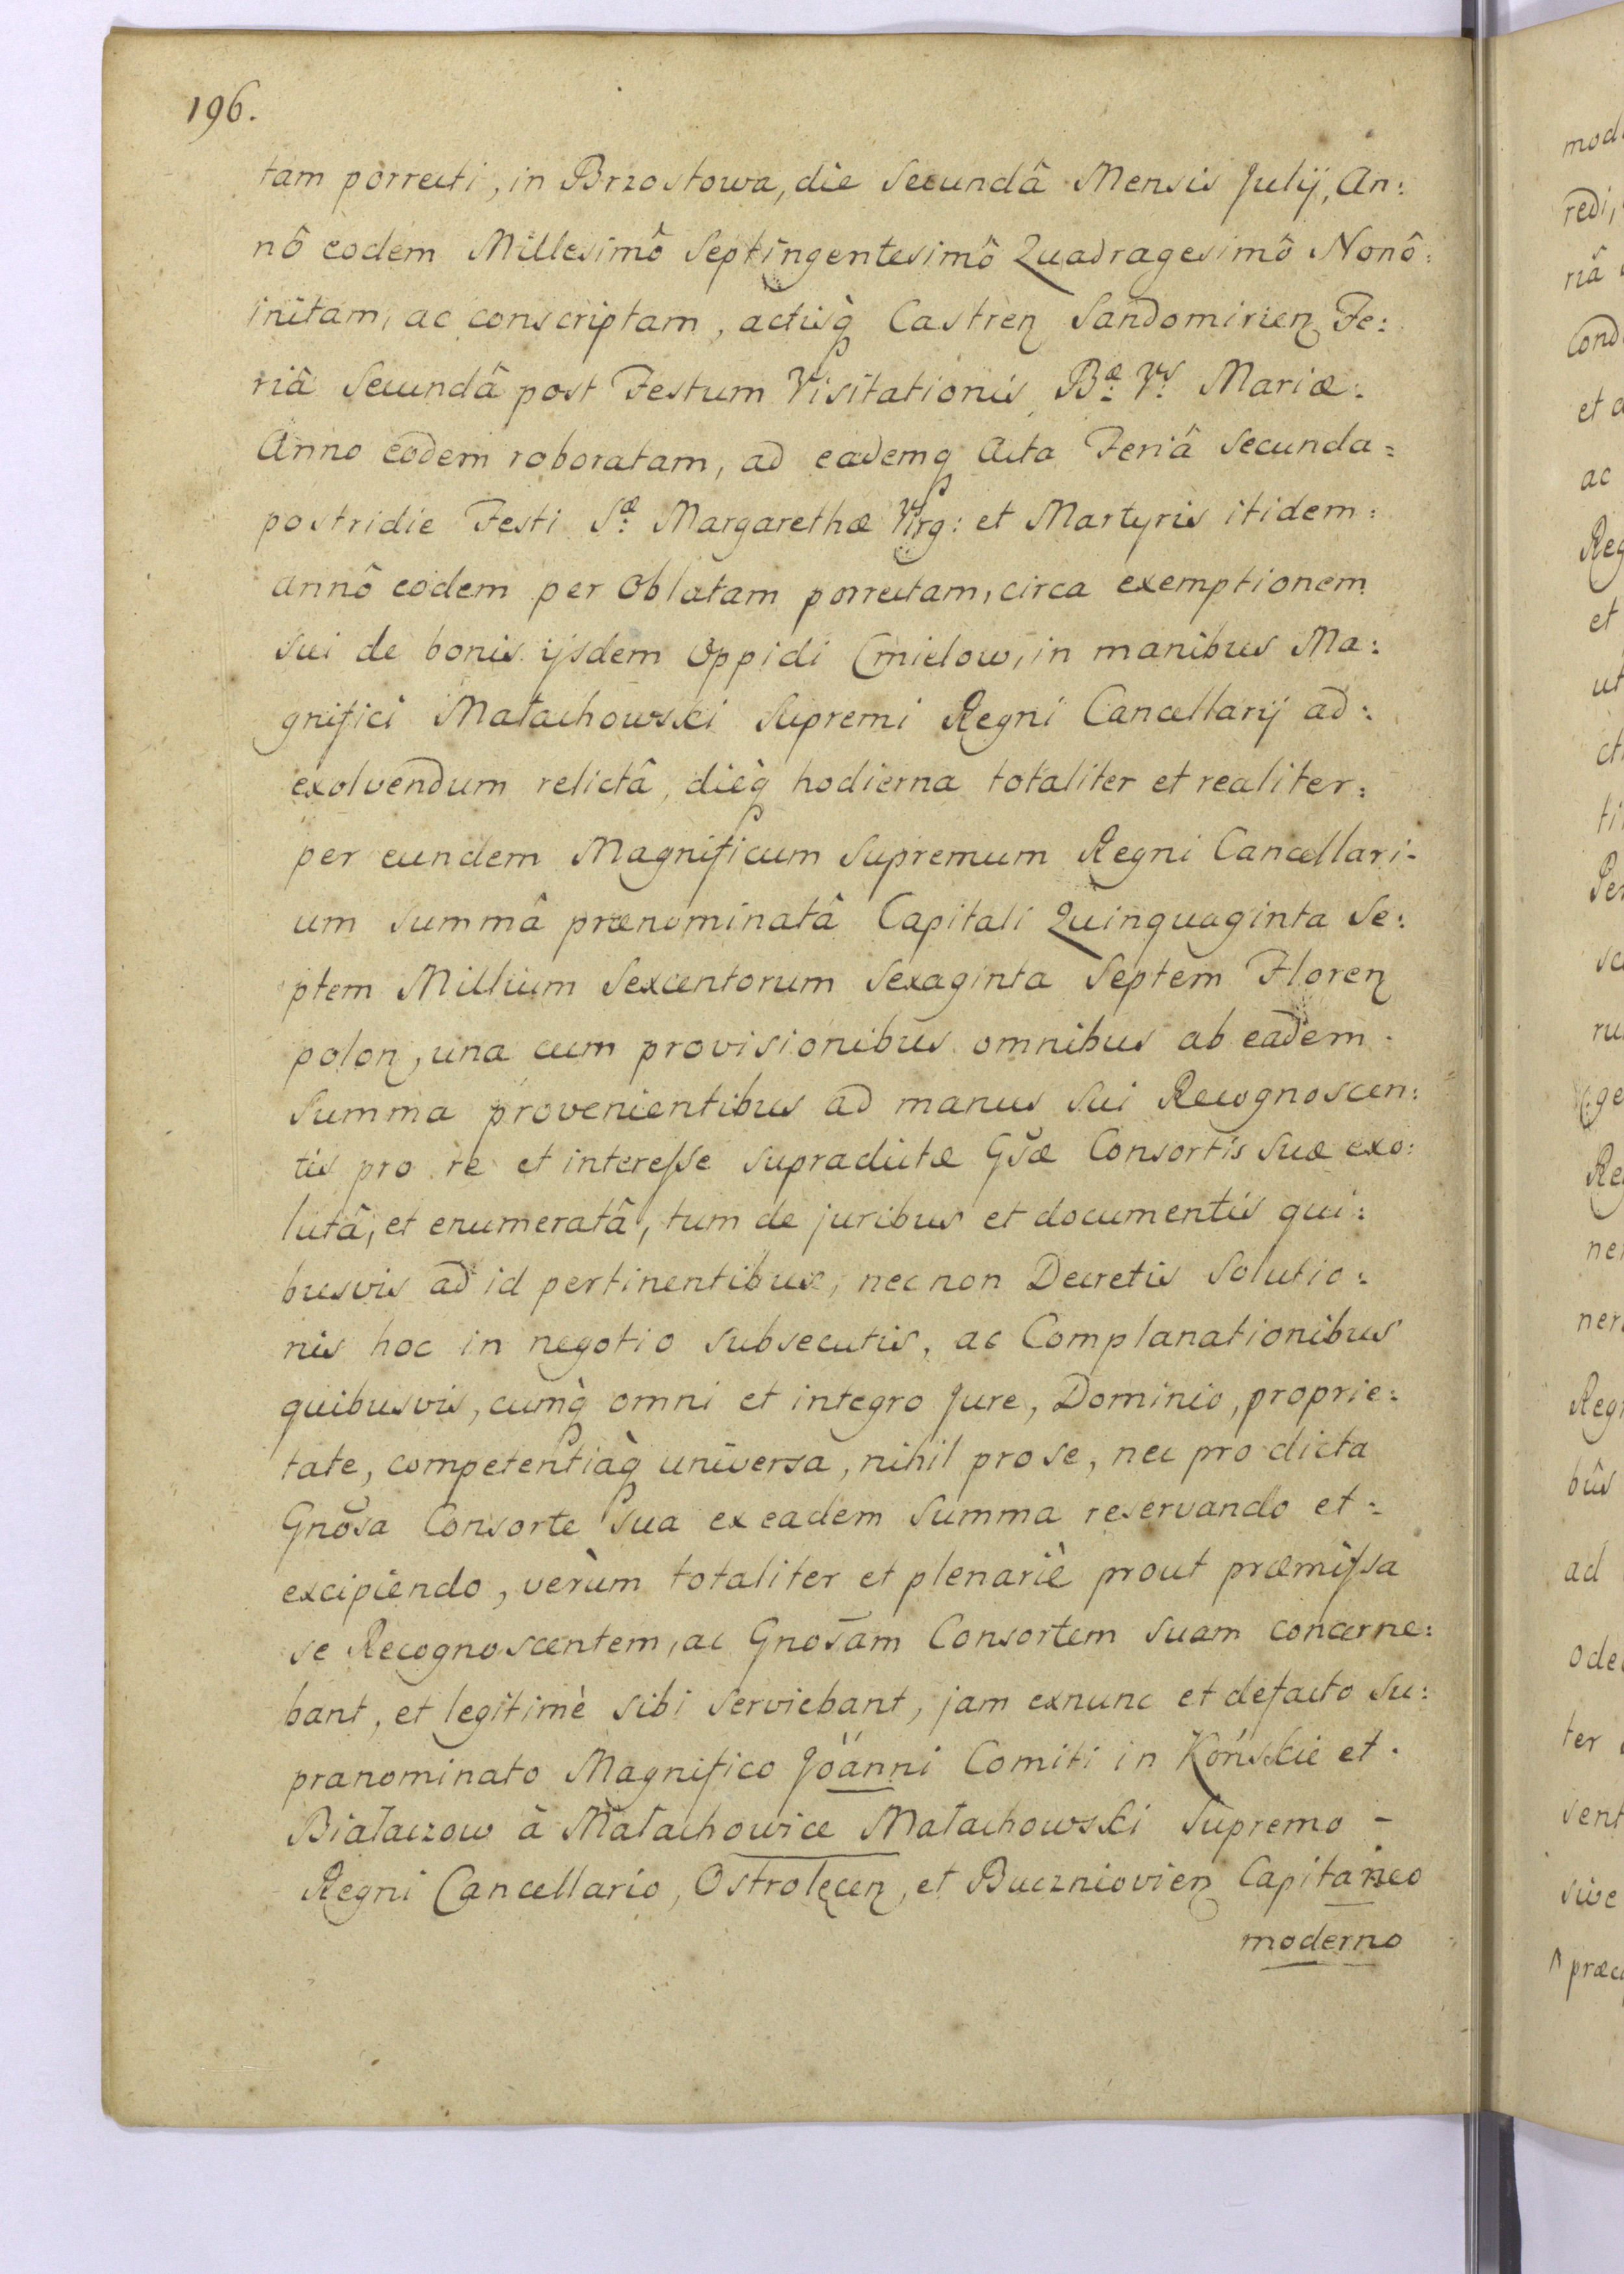 196.
tam porrecti, in Brzostowa, die Secundâ Mensis Julij, An:
nô eodem Millesimô Septingentesimô Quadragesimô Nonô:
initam, ac conscriptam, actisq̀ Castreñ Sandomirieñ Fe:
riâ Secundâ post Festum Visitationis Bæ: Vs: Mariæ:
Anno eodem roboratam, ad eademq̀ Acta Feriâ Secunda=
postridie Festi Sæ: Margarethæ Virg: et Martyris itidem:
annô eodem per Oblatam porrectam, circa exemptionem
sui de bonis ijsdem Oppidi Cmielow, in manibus Ma:
gnifici Małachowski Supremi Regni Cancellarij ad:
exolvendum relictâ, dieq̀ hodierna totaliter et realiter:
per eundem Magnificum Supremum Regni Cancellari-
um Summâ prænominatâ Capitali Quinquaginta Se:
ptem Millium Sexcentorum Sexaginta Septem Floreñ
poloñ, una cum provisionibus omnibus ab eadem.
Summa provenientibus ad manus Sui Recognoscen:
tis pro re et interesse supradictæ Gs̃æ Consortis Suæ exo:
lutâ, et enumeratâ, tum de juribus et documentis qui:
busvis ad id pertinentibus, nec non Decretis Solutio:
nis hoc in negotio subsecutis, ac Complanationibus
quibusvis, cumq̀ omni et integro Jure, Dominio, proprie:
tate, competentiaq̀ universa, nihil pro se, nec pro dicta
Gnõsa Consorte Sua ex eadem Summa reservando et=
excipiendo, verùm totaliter et plenariè prout præmissa
se Recognoscentem, ac Gnos̃am Consortem Suam concerne:
bant, et legitimè sibi Serviebant, jam exnunc et defacto Su:
pranominato Magnifico Joänni Comiti in Końskie et.
Białaczow à Małachowice Małachowski Supremo -
Regni Cancellario, Ostrołęceñ, et Buczniovieñ Capitaneo
moderno